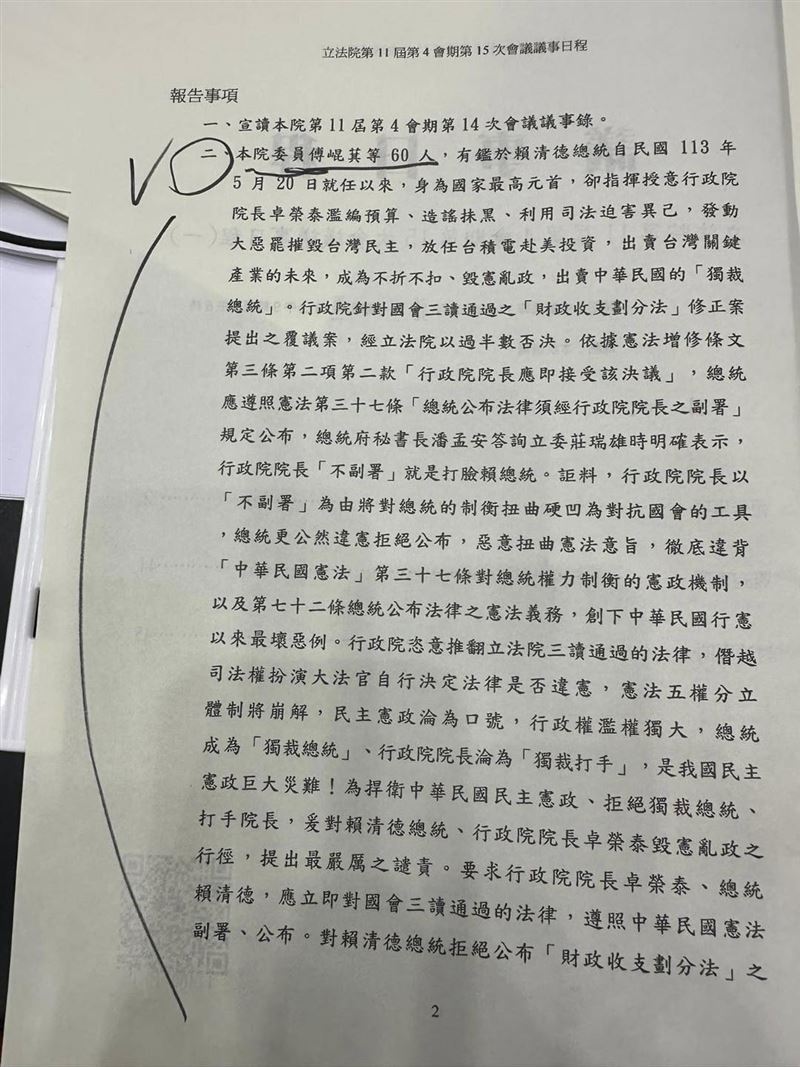 立法院第 11 屆第 4 會期第 15 次會議議事日程
報告事項
一、宣讀本院第 11 屆第 4 會期第 14 次會議議事錄。
二、本院委員傅崐萁等 60 人，有鑑於賴清德總統自民國 113 年
5 月 20 日就任以來，身為國家最高元首，卻指揮授意行政院
院長卓榮泰濫編預算、造謠抹黑、利用司法迫害異己，發動
大惡罷摧毀台灣民主，放任台積電赴美投資，出賣台灣關鍵
產業的未來，成為不折不扣、毀憲亂政，出賣中華民國的「獨裁
總統」。行政院針對國會三讀通過之「財政收支劃分法」修正案
提出之覆議案，經立法院以過半數否決。依據憲法增修條文
第三條第二項第二款「行政院院長應即接受該決議」，總統
應遵照憲法第三十七條「總統公布法律須經行政院院長之副署」
規定公布，總統府秘書長潘孟安答詢立委莊瑞雄時明確表示，
行政院院長「不副署」就是打臉賴總統。詎料，行政院院長以
「不副署」為由將對總統的制衡扭曲硬凹為對抗國會的工具
，總統更公然違憲拒絕公布，惡意扭曲憲法意旨，徹底違背
「中華民國憲法」第三十七條對總統權力制衡的憲政機制，
以及第七十二條總統公布法律之憲法義務，創下中華民國行憲
以來最壞惡例。行政院恣意推翻立法院三讀通過的法律，僭越
司法權扮演大法官自行決定法律是否違憲，憲法五權分立
體制將崩解，民主憲政淪為口號，行政權濫權獨大，總統
成為「獨裁總統」、行政院院長淪為「獨裁打手」，是我國民主
憲政巨大災難！為捍衛中華民國民主憲政、拒絕獨裁總統、
打手院長，爰對賴清德總統、行政院院長卓榮泰毀憲亂政之
行徑，提出最嚴厲之譴責。要求行政院院長卓榮泰、總統
賴清德，應立即對國會三讀通過的法律，遵照中華民國憲法
副署、公布。對賴清德總統拒絕公布「財政收支劃分法」之
2